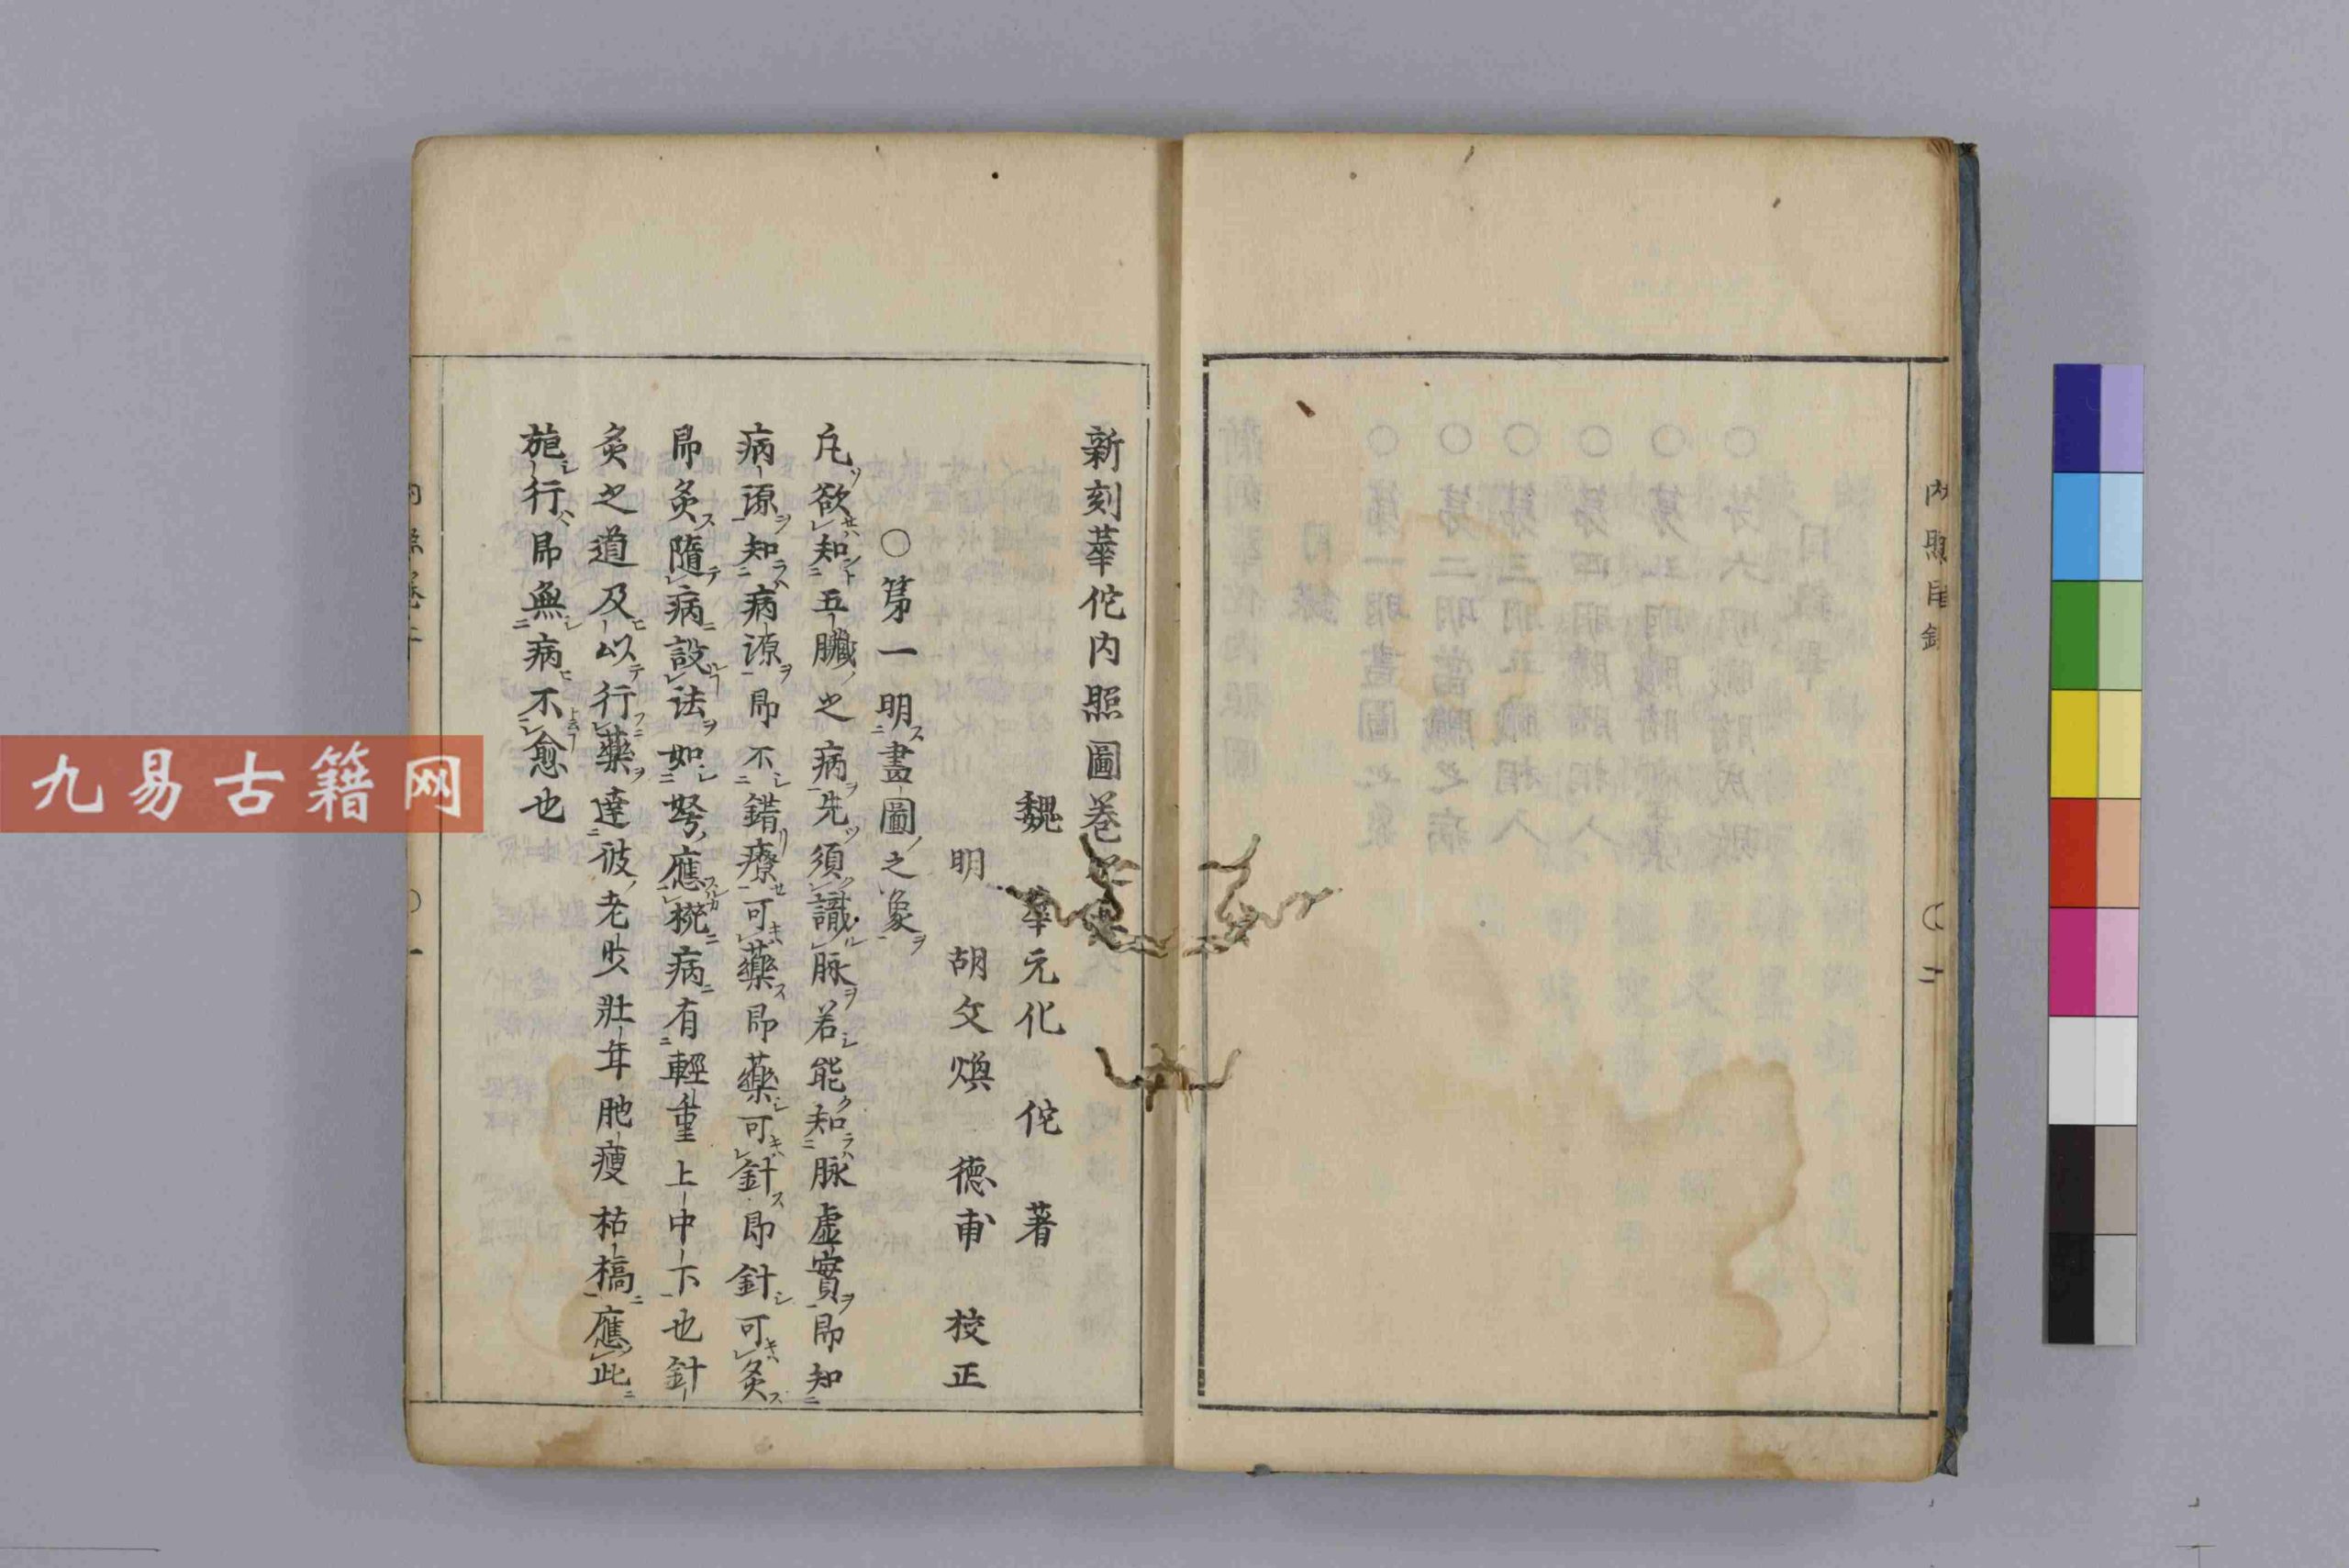 内照目録
二
新刻華佗内照圖卷
魏 華元化 佗 著
明 胡文煥 德甫 校正
○第一明畫圖之象
凡欲知五臟之病先須識脉若能知脉虛實即知
病源知病源即不錯療可藥即藥可針即針可灸
即灸隨病設法如弩應機病有輕重上中下也針
灸之道及以行藥達彼老少壯年肥瘦枯槁應此
施行即無病不愈也
九易古籍网